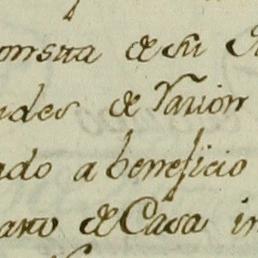 onsta de su
udes de Varion
ado a beneficio
arto de Casa in